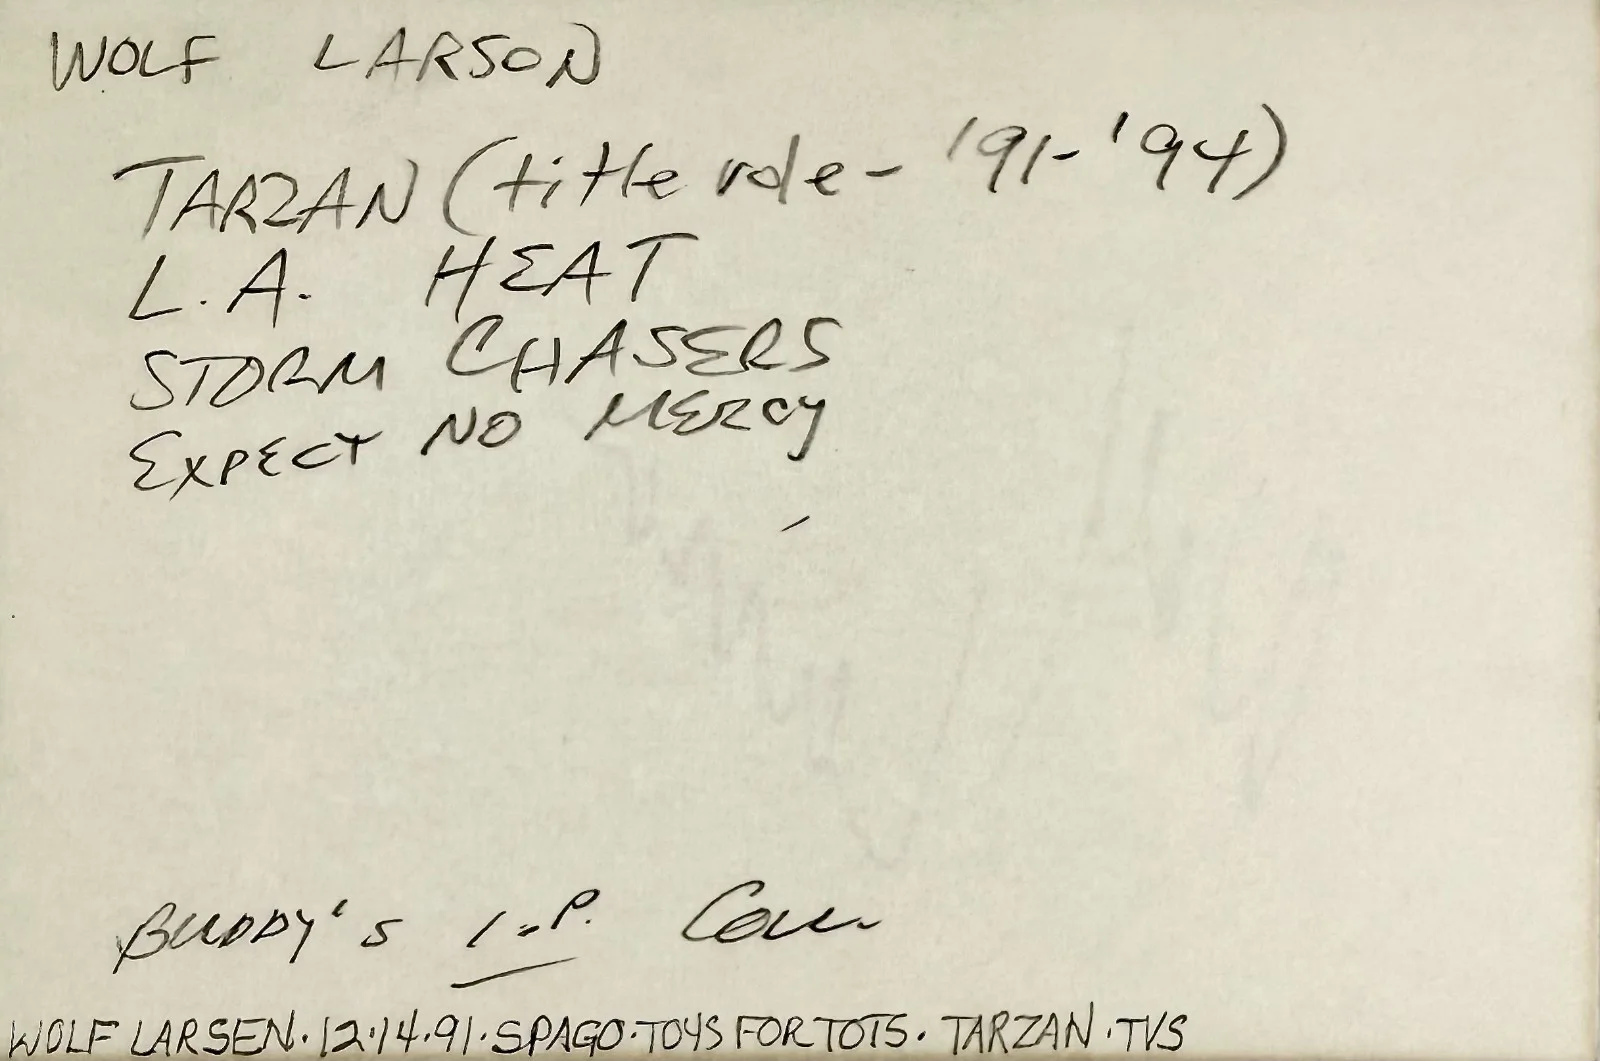 WOLF LARSON
TARZAN (title role - '91-'94)
L.A. HEAT
STORM CHASERS
EXPECT NO MERCY
BUDDY'S I.P. Coll.
WOLF LARSEN · 12·14·91 · SPAGO · TOYS FOR TOTS · TARZAN · TVS